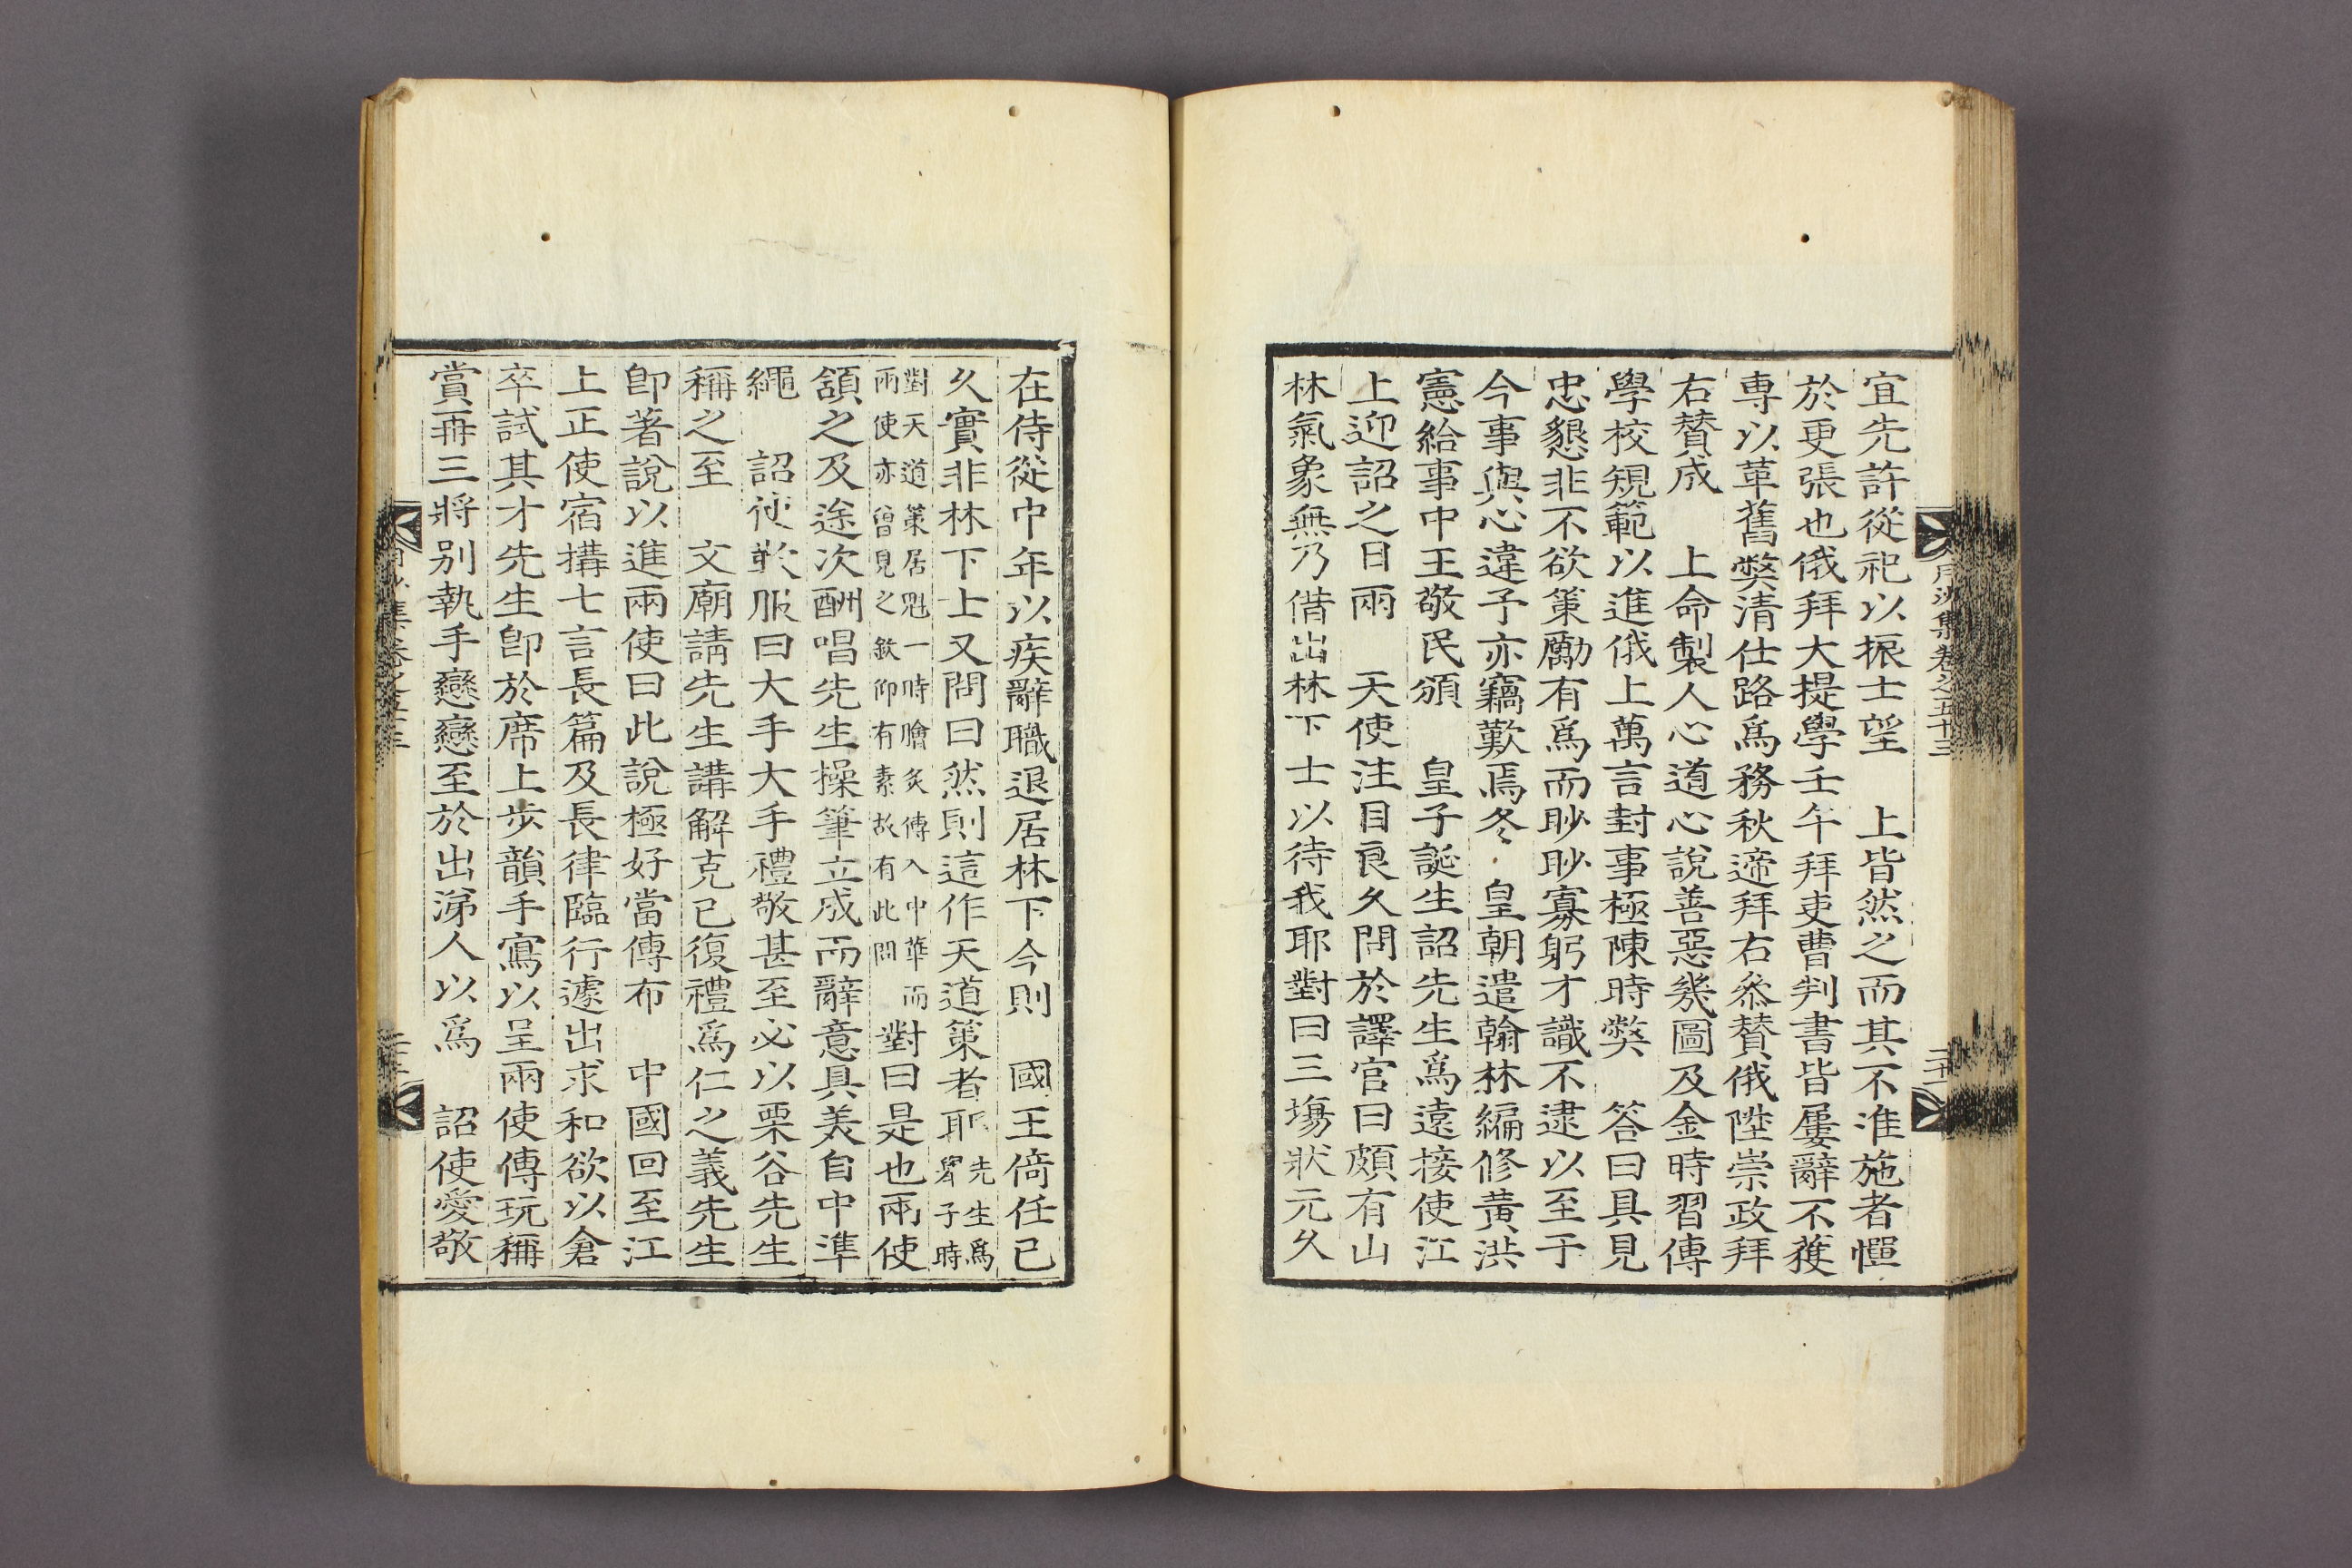 月沙集卷之五十三
宜先許從祀以振士望　上皆然之而其不准施者憚
於更張也俄拜大提學壬午拜吏曹判書皆屢辭不獲
專以革舊弊清仕路爲務秋遞拜右叅贊俄陞崇政拜
右贊成　上命製人心道心說善惡幾圖及金時習傳
學校規範以進俄上萬言封事極陳時弊　答曰具見
忠懇非不欲策勵有爲而眇眇寡躬才識不逮以至于
今事與心違予亦竊歎焉冬　皇朝遣翰林編修黃洪
憲給事中王敬民頒　皇子誕生詔先生爲遠接使江
上迎詔之日兩　天使注目良久問於譯官曰頗有山
林氣象無乃借出林下士以待我耶對曰三塲狀元久
在侍從中年以疾辭職退居林下今則　國王倚任已
久實非林下士又問曰然則這作天道策者耶先生爲擧子時
對天道策居魁一時膾炙傳入中華而兩使亦曾見之欽仰有素故有此問對曰是也兩使
頷之及途次酬唱先生操筆立成而辭意具美自中準
繩　詔使歎服曰大手大手禮敬甚至必以栗谷先生
稱之至　文廟請先生講解克己復禮爲仁之義先生
卽著說以進兩使曰此說極好當傳布　中國回至江
上正使宿搆七言長篇及長律臨行遽出求和欲以倉
卒試其才先生卽於席上步韻手寫以呈兩使傳玩稱
賞再三將别執手戀戀至於出涕人以爲　詔使愛敬